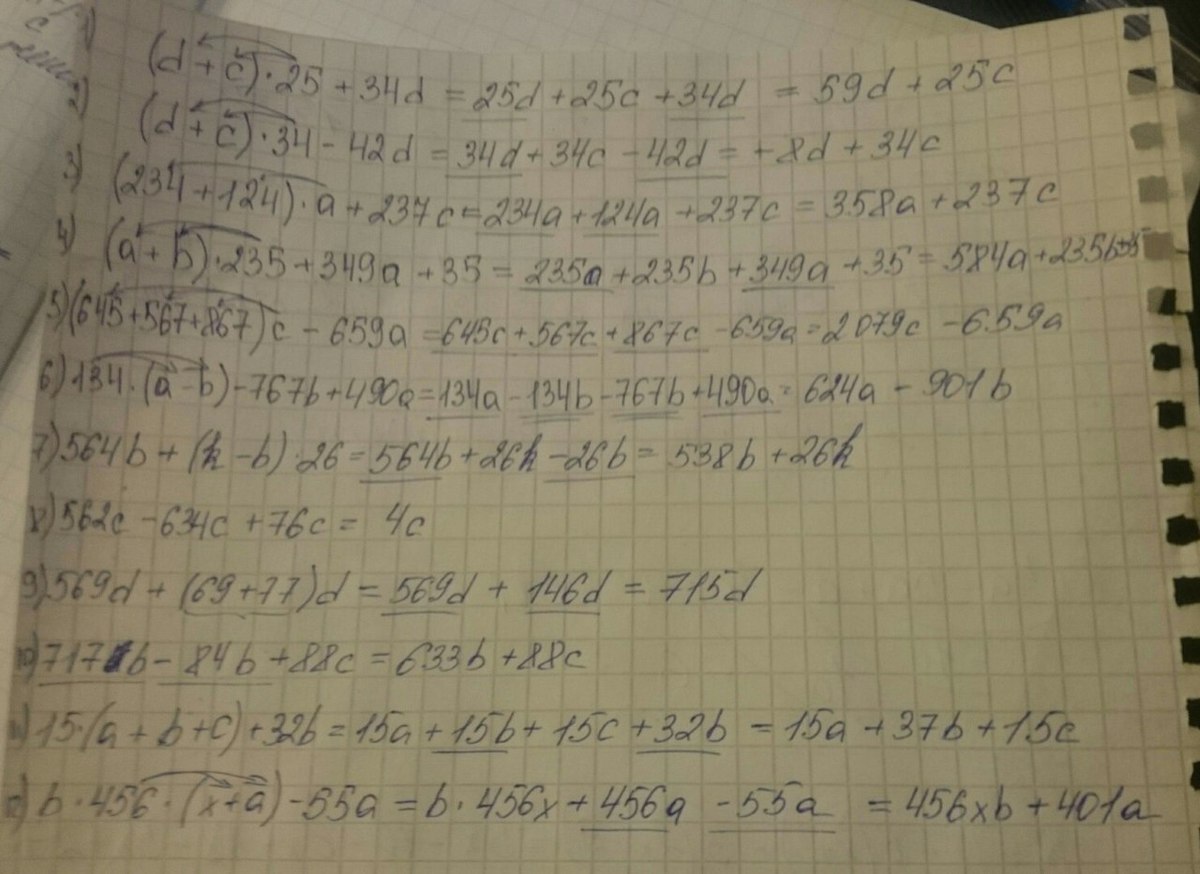 1) (d + c) · 25 + 34d = 25d + 25c + 34d = 59d + 25c
2) (d + c) · 34 - 42d = 34d + 34c - 42d = -8d + 34c
3) (234 + 124) · a + 237c = 234a + 124a + 237c = 358a + 237c
4) (a + b) · 235 + 349a + 35 = 235a + 235b + 349a + 35 = 584a + 235b + 35
5) (645 + 567 + 867)c - 659a = 645c + 567c + 867c - 659a = 2079c - 659a
6) 134 · (a - b) - 767b + 490a = 134a - 134b - 767b + 490a = 624a - 901b
7) 564b + (k - b) · 26 = 564b + 26k - 26b = 538b + 26k
8) 562c - 634c + 76c = 4c
9) 569d + (69 + 77)d = 569d + 146d = 715d
10) 717b - 84b + 88c = 633b + 88c
11) 15 · (a + b + c) + 32b = 15a + 15b + 15c + 32b = 15a + 37b + 15c
12) b · 456 · (x + a) - 55a = b · 456x + 456a - 55a = 456xb + 401a